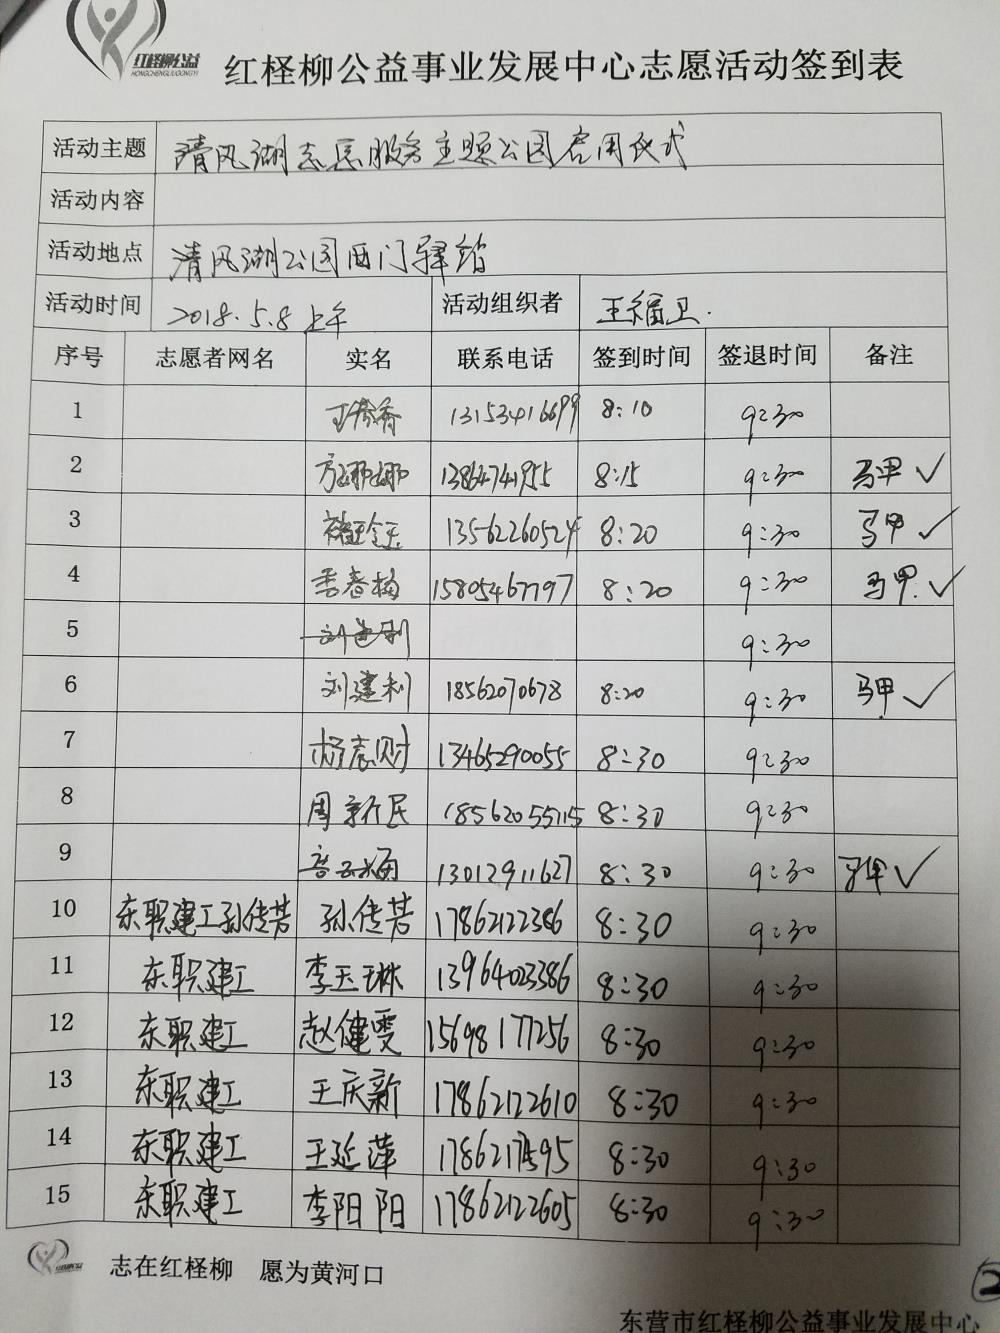 红柽柳公益
HONGCHENGLIUGONGYI
红柽柳公益事业发展中心志愿活动签到表
活动主题 清风湖志愿服务主题公园启用仪式
活动内容
活动地点 清风湖公园西门驿站
活动时间 2018.5.8 上午 活动组织者 王福卫.
序号 志愿者网名 实名 联系电话 签到时间 签退时间 备注
1 13153416699 8:10 9:30
2 方娜娜 13864741955 8:15 9:30 马甲 ✓
3 13562260524 8:20 9:30 马甲 ✓
4 季春梅 15805467797 8:20 9:30 马甲. ✓
5 9:30
6 刘建利 18562070678 8:20 9:30 马甲 ✓
7 13465290055 8:30 9:30
8 周新民 18562055115 8:30 9:30
9 13012911627 8:30 9:30 马甲 ✓
10 东职建工孙传芳 孙传芳 17862122386 8:30 9:30
11 东职建工 李玉琳 13964023386 8:30 9:30
12 东职建工 赵健雯 15698177256 8:30 9:30
13 东职建工 王庆新 17862122610 8:30 9:30
14 东职建工 王延萍 8:30 9:30
15 东职建工 李阳阳 17862122605 8:30 9:30
志在红柽柳 愿为黄河口
2
东营市红柽柳公益事业发展中心